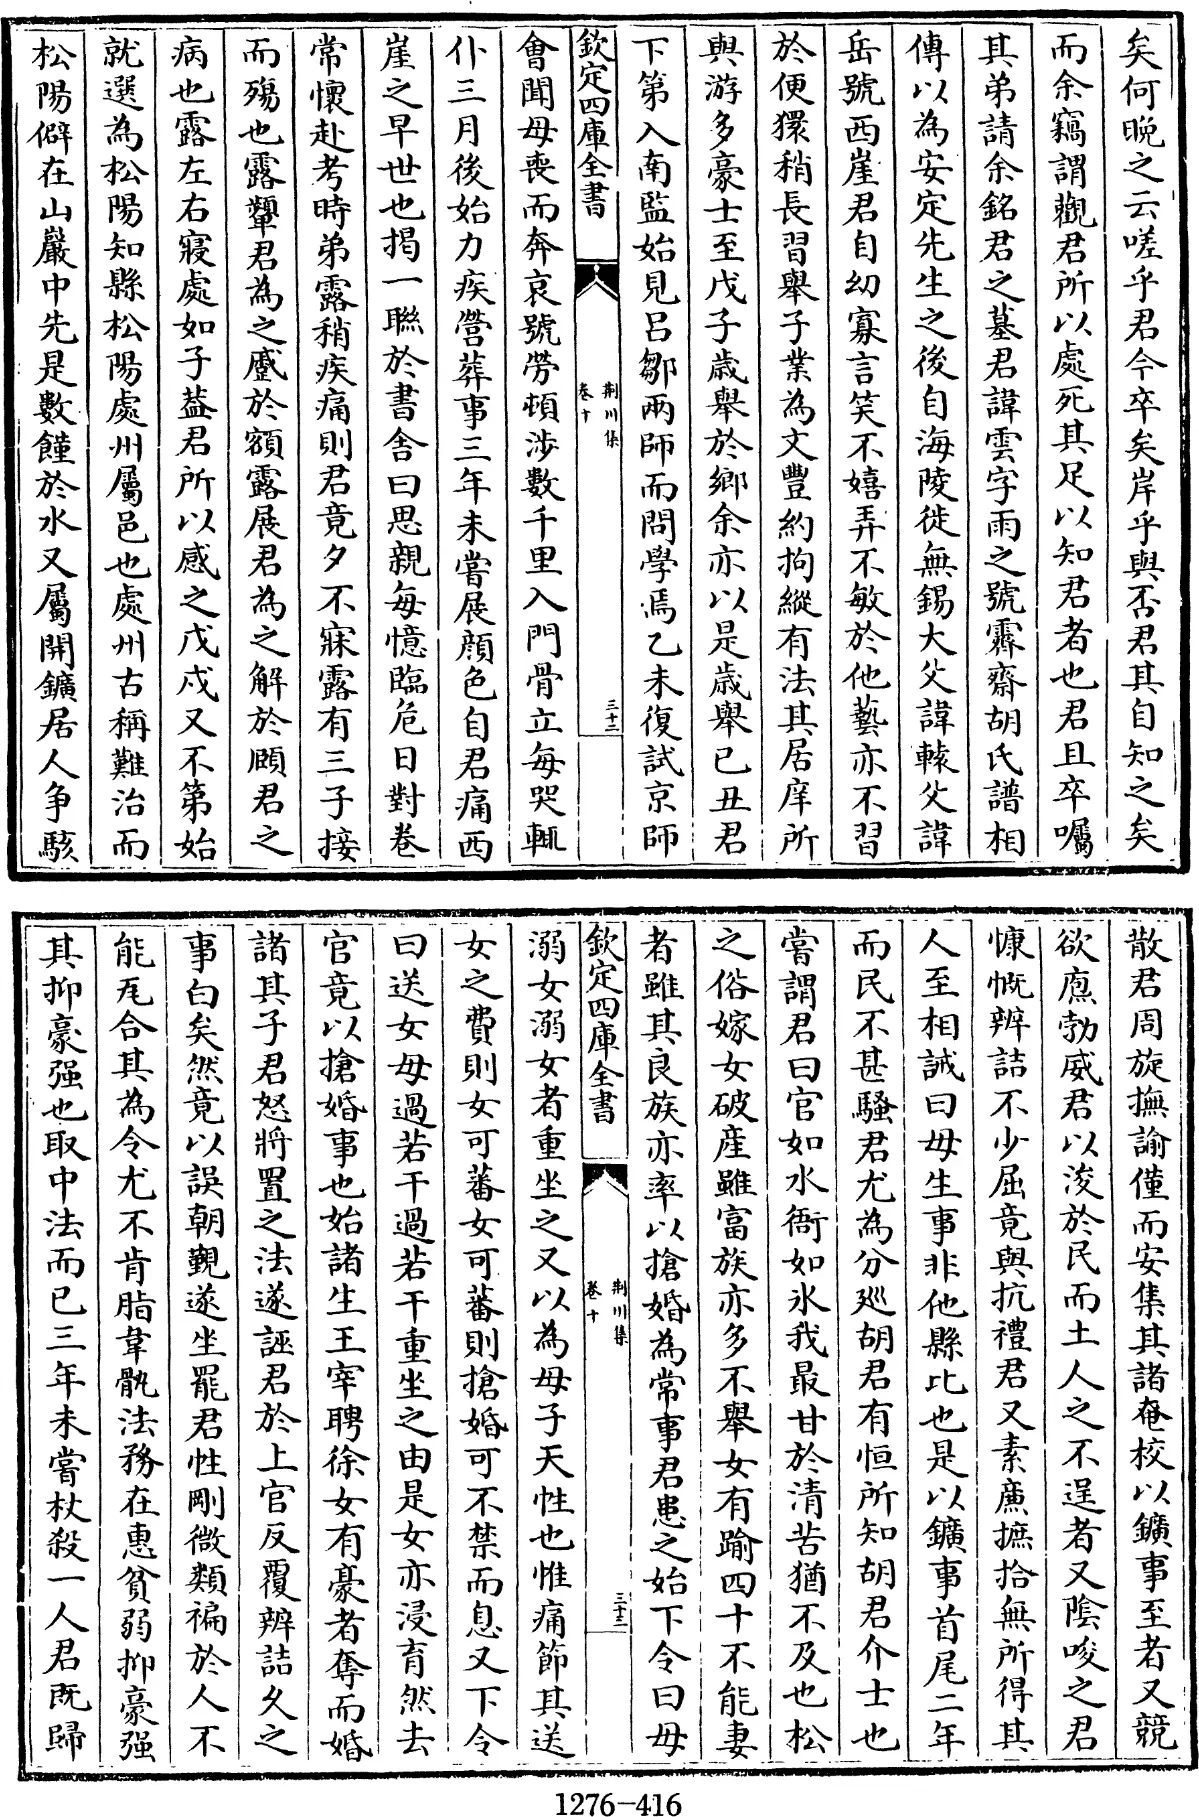 矣何晚之云嗟乎君今卒矣岸乎與否君其自知之矣
而余竊謂觀君所以處死其足以知君者也君且卒囑
其弟請余銘君之墓君諱雲字雨之號霽齋胡氏譜相
傳以為安定先生之後自海陵徙無錫大父諱轅父諱
岳號西崖君自幼寡言笑不嬉弄不敏於他藝亦不習
於便獧稍長習舉子業為文豐約拘縱有法其居庠所
與游多豪士至戊子歲舉於鄉余亦以是歲舉已丑君
下第入南監始見呂鄒兩師而問學焉乙未復試京師
欽定四庫全書
荆川集
卷十
三十二
會聞母喪而奔哀號勞頓涉數千里入門骨立每哭輒
仆三月後始力疾營葬事三年未嘗展顔色自君痛西
崖之早世也揭一聯於書舍曰思親每憶臨危日對卷
常懷赴考時弟露稍疾痛則君竟夕不寐露有三子接
而殤也露顰君為之蹙於額露展君為之解於頤君之
病也露左右寢處如子葢君所以感之戊戌又不第始
就選為松陽知縣松陽處州屬邑也處州古稱難治而
松陽僻在山巖中先是數饉於水又屬開鑛居人争駭
散君周旋撫諭僅而安集其諸奄校以鑛事至者又競
欲慿勃威君以浚於民而土人之不逞者又陰唆之君
慷慨辨詰不少屈竟與抗禮君又素廉摭拾無所得其
人至相誡曰毋生事非他縣比也是以鑛事首尾二年
而民不甚騷君尤為分廵胡君有恒所知胡君介士也
嘗謂君曰官如水衙如氷我最甘於清苦猶不及也松
之俗嫁女破產雖富族亦多不舉女有踰四十不能妻
者雖其良族亦率以搶婚為常事君患之始下令曰毋
欽定四庫全書
荆川集
卷十
三十三
溺女溺女者重坐之又以為母子天性也惟痛節其送
女之費則女可蕃女可蕃則搶婚可不禁而息又下令
曰送女毋過若干過若干重坐之由是女亦浸育然去
官竟以搶婚事也始諸生王宰聘徐女有豪者奪而婚
諸其子君怒將置之法遂誣君於上官反覆辨詰久之
事白矣然竟以誤朝覲遂坐罷君性剛微類褊於人不
能茍合其為令尤不肯脂韋骫法務在惠貧弱抑豪强
其抑豪强也取中法而已三年未嘗杖殺一人君既歸
1276—416